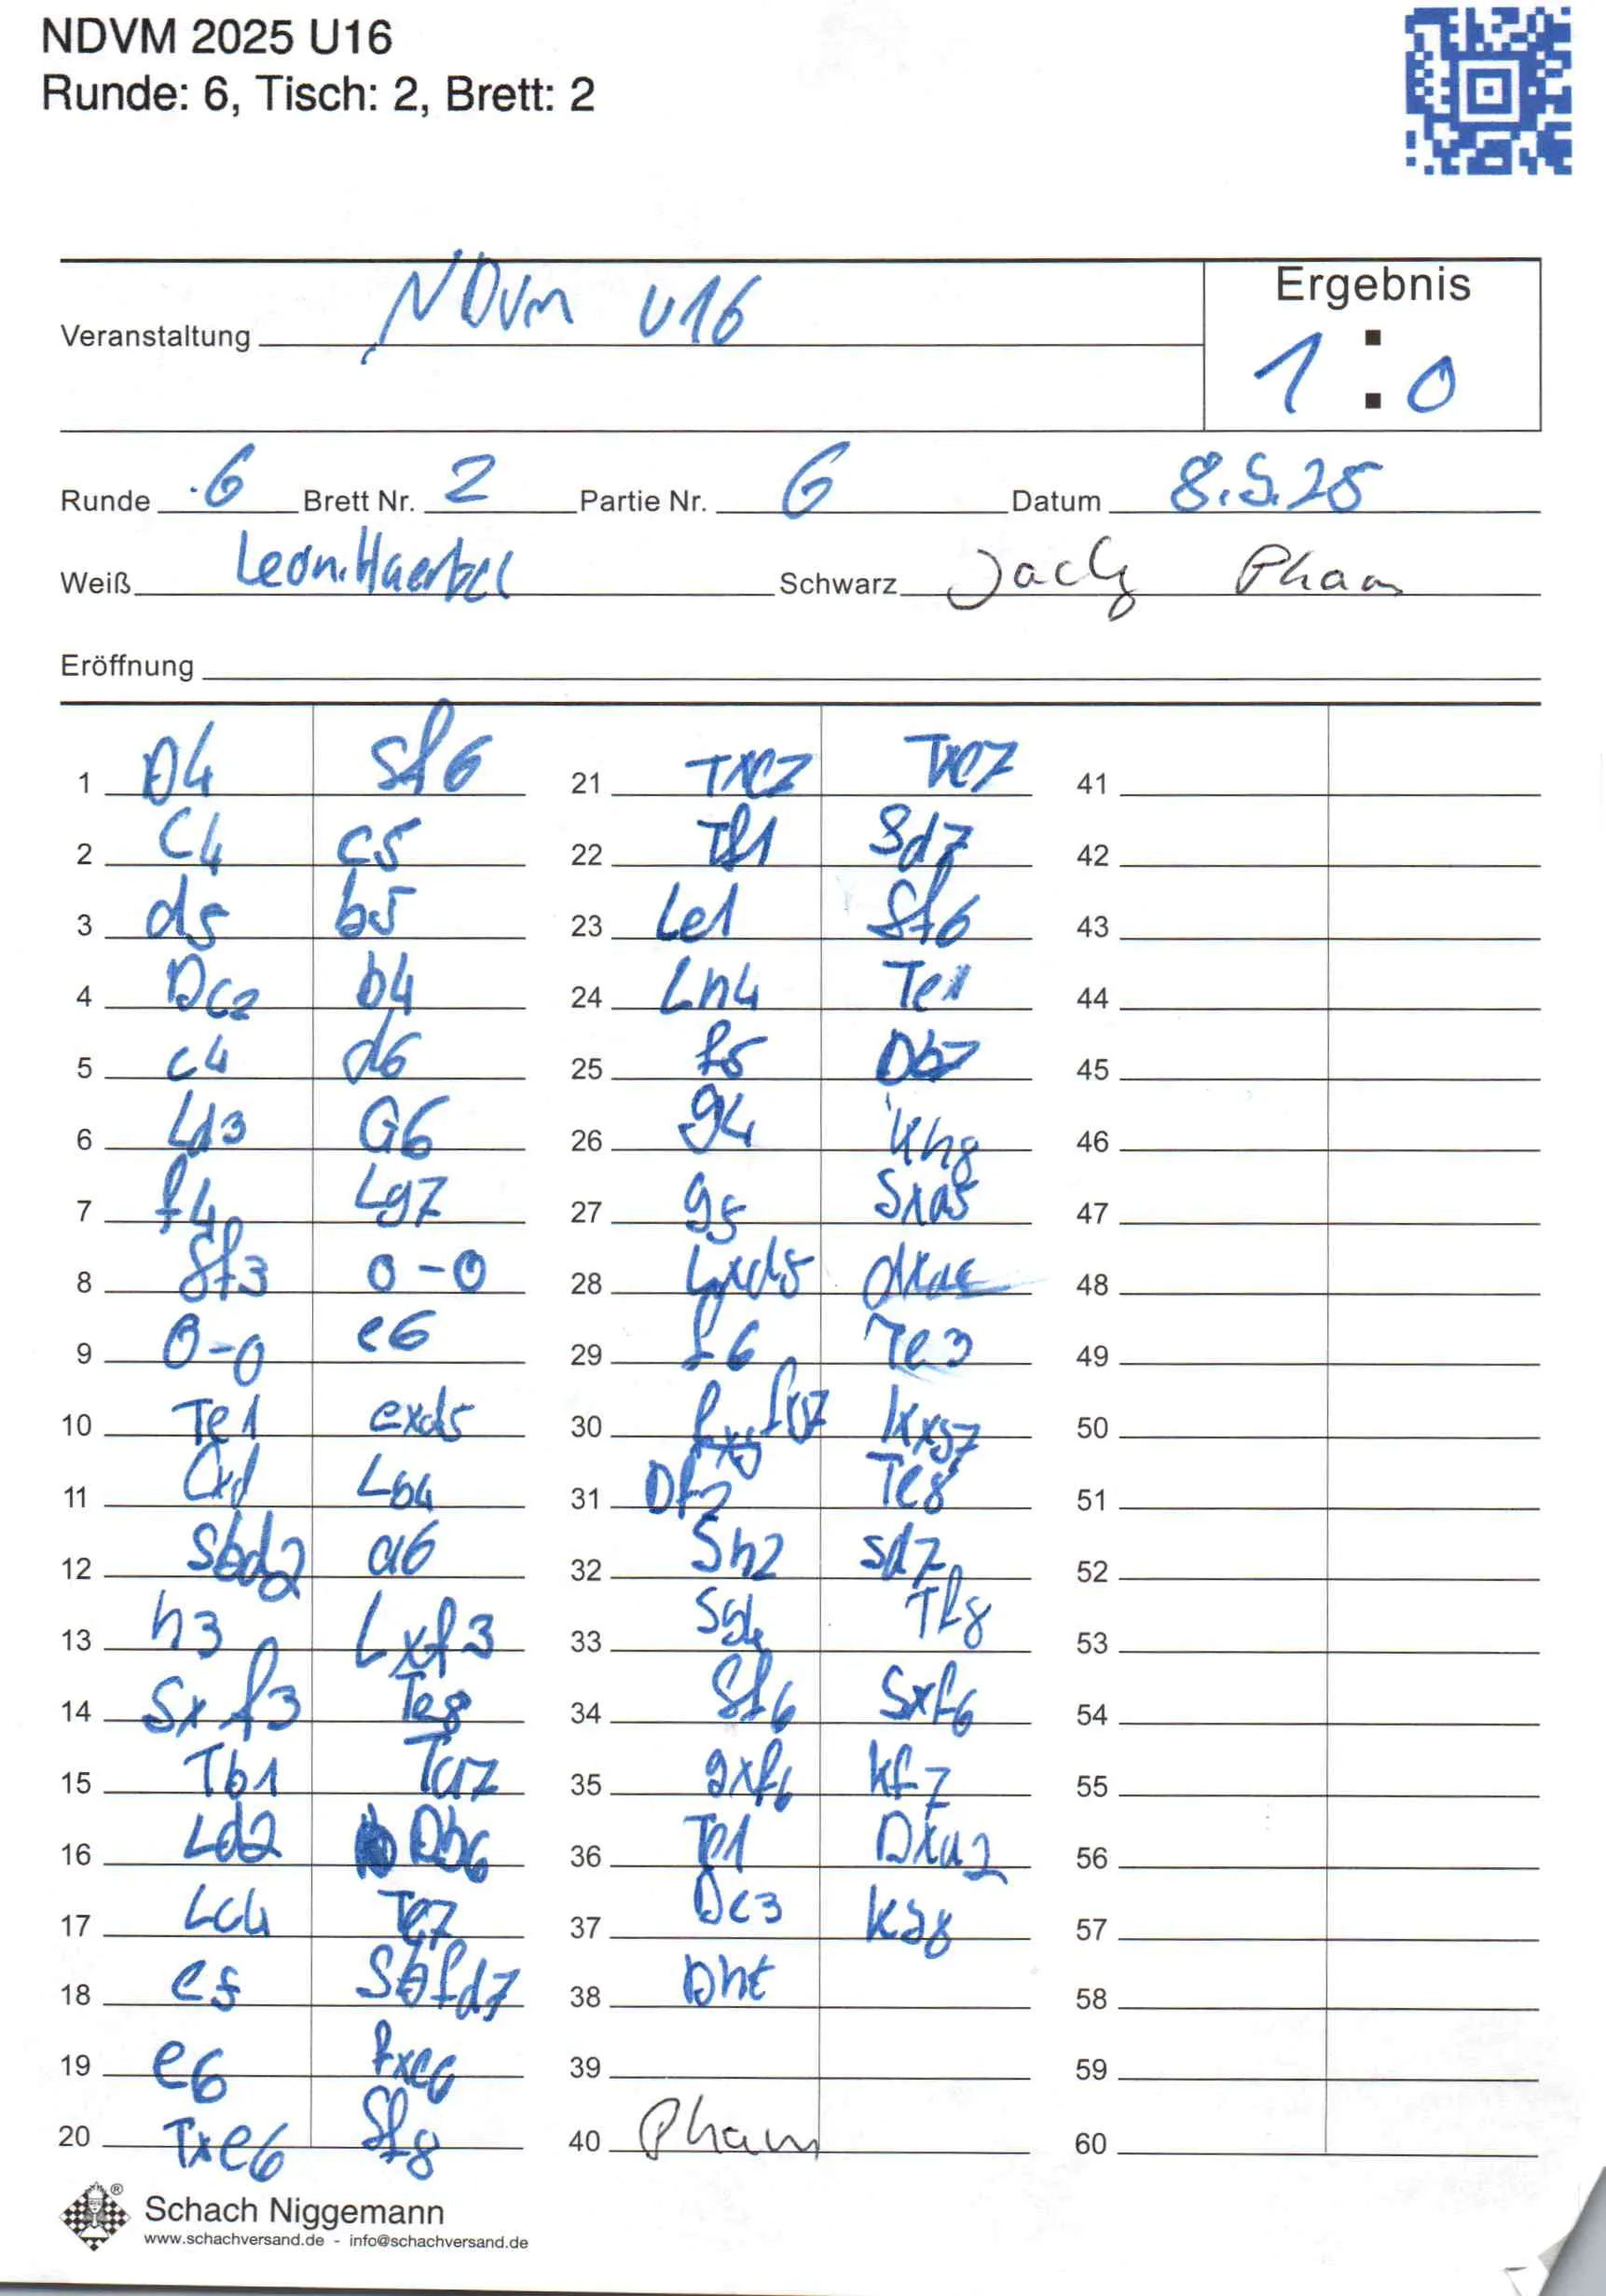 NDVM 2025 U16
Runde: 6, Tisch: 2, Brett: 2
Veranstaltung NDVM U16
Ergebnis
1 : 0
Runde 6 Brett Nr. 2 Partie Nr. 6 Datum 8.5.25
Weiß Leon Schwarz Jacky Pham
Eröffnung
1 D4 Sf6 21 Txe7 Txe7 41
2 C4 c5 22 Tf1 Sd7 42
3 d5 b5 23 Le1 Sf6 43
4 Dc2 b4 24 Lh4 Te8 44
5 e4 d6 25 f5 Db7 45
6 Ld3 G6 26 g4 Kh8 46
7 f4 Lg7 27 g5 Sxd5 47
8 Sf3 0-0 28 Lxd5 48
9 0-0 e6 29 f6 Te3 49
10 Te1 exd5 30 fxg7 Kxg7 50
11 Cxd Lg4 31 Df2 Te8 51
12 Sbd2 a6 32 Sh2 Sd7 52
13 h3 Lxf3 33 Sg4 Tf8 53
14 Sxf3 Te8 34 Sf6 Sxf6 54
15 Tb1 Ta7 35 gxf6 Kf7 55
16 Ld2 Db6 36 Te1 Dxa2 56
17 Lc4 Te7 37 De3 Kg8 57
18 e5 Sfd7 38 58
19 e6 fxe6 39 59
20 Txe6 Sf8 40 Pham 60
Schach Niggemann
www.schachversand.de - info@schachversand.de